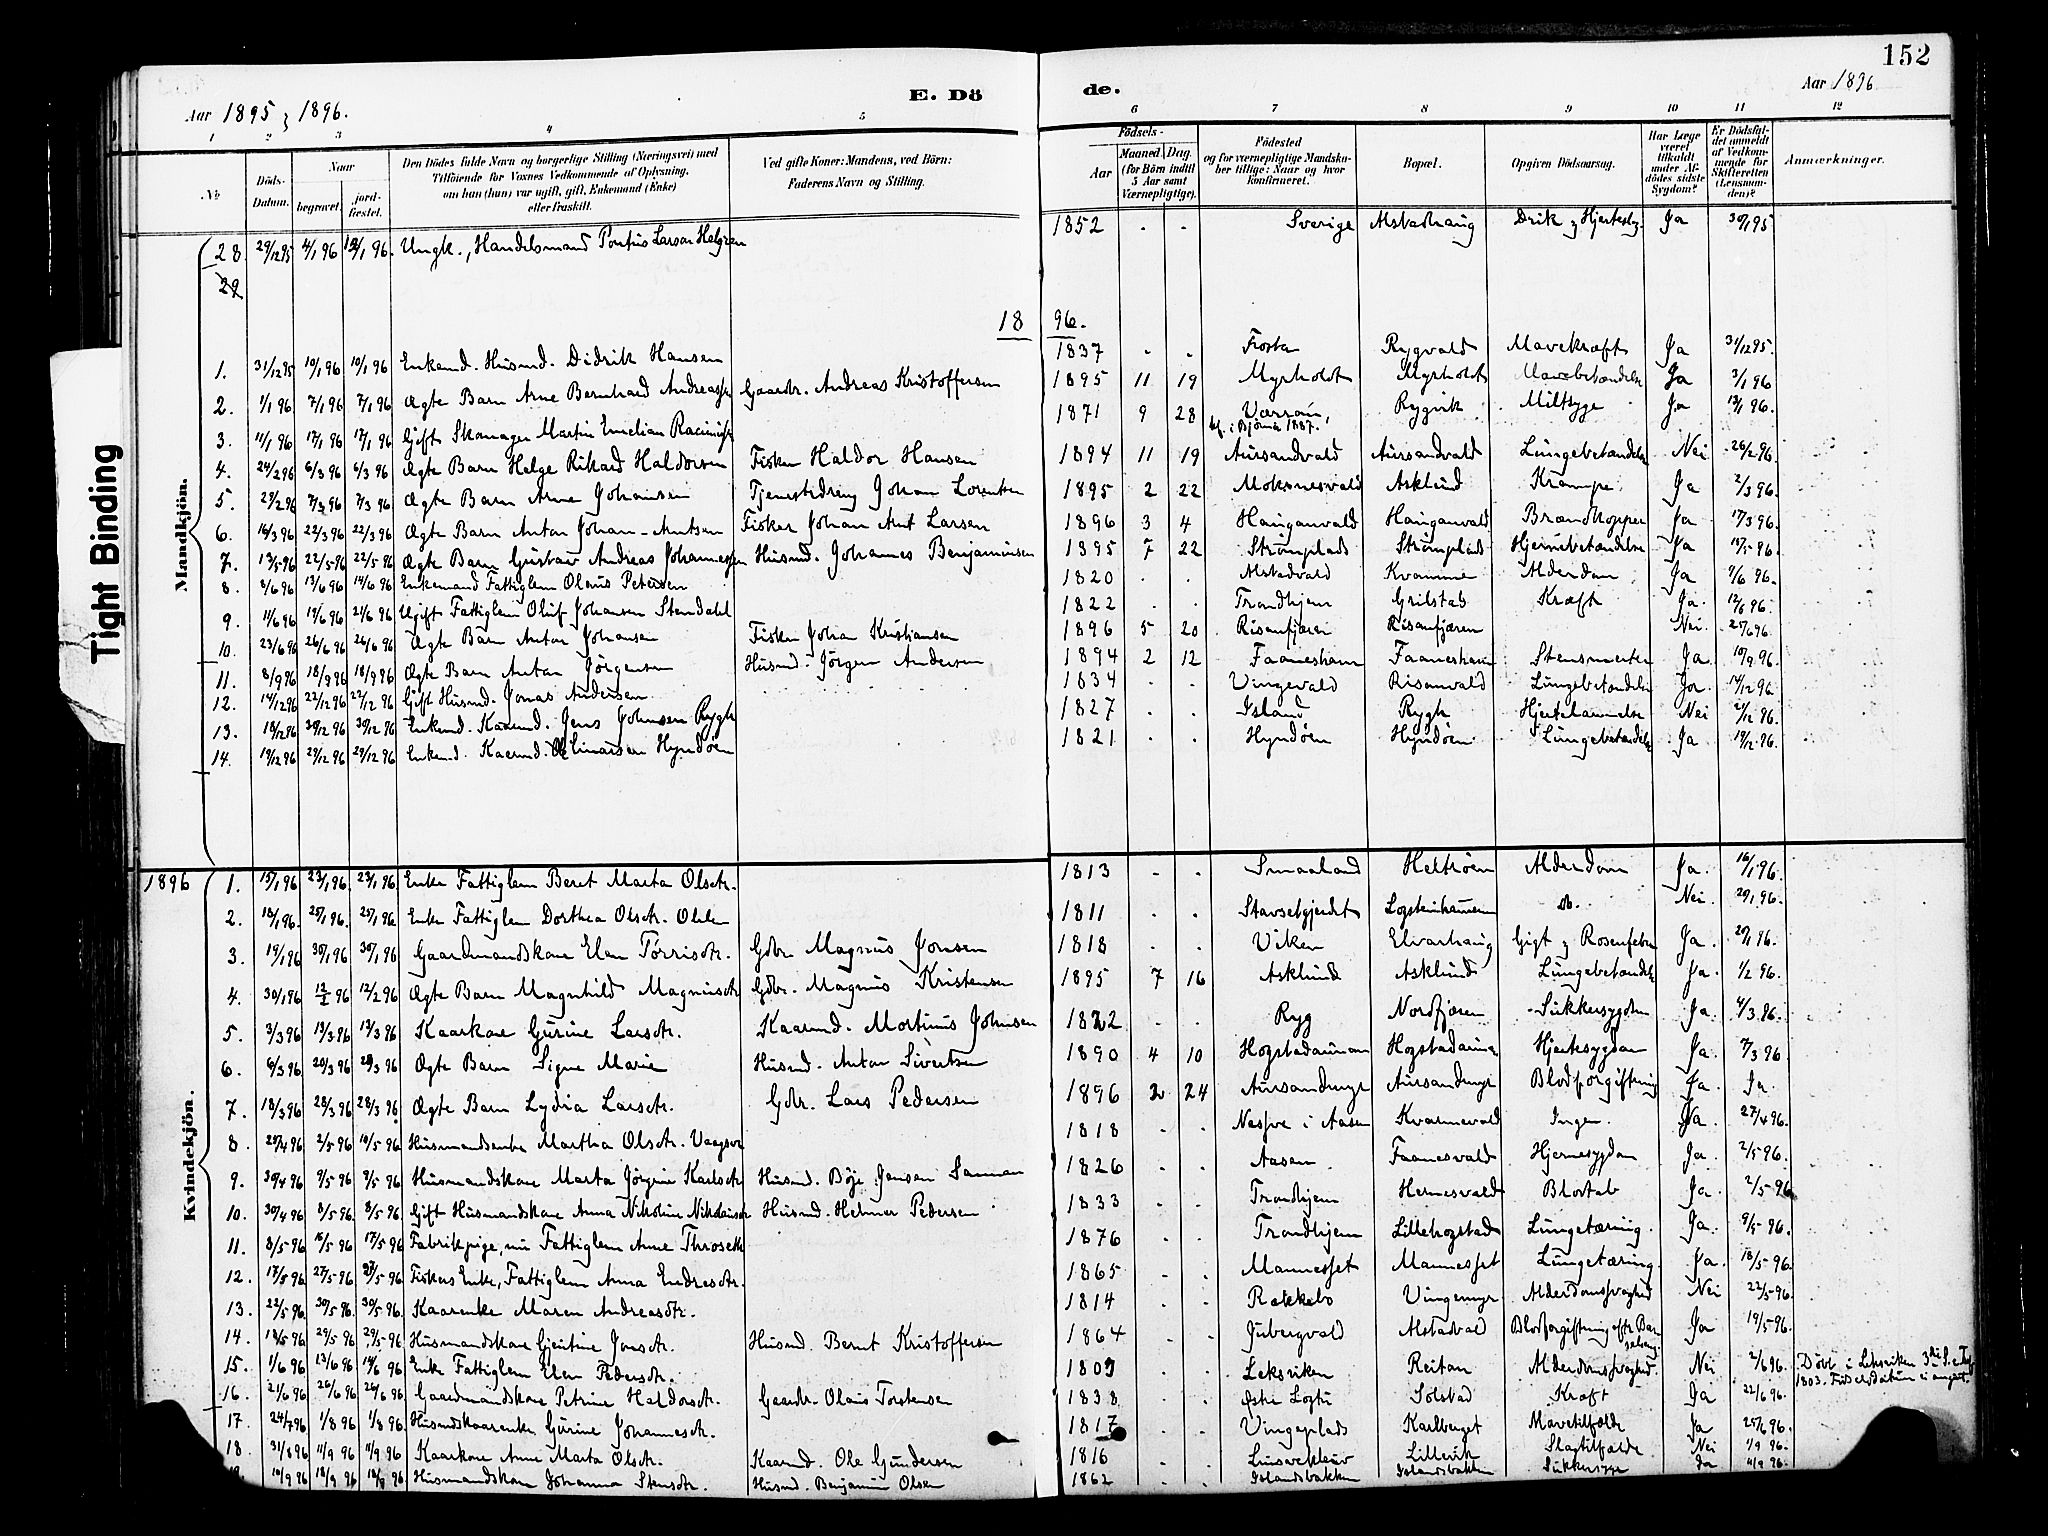 152
Aar 1895 & 1896.
E. Dö
de.
Aar 1896
1 2 3 4 5 6 7 8 9 10 11 12
No.
Döds-Datum.
Naar
begravet.
jord-fæstet.
Den Dödes fulde Navn og borgerlige Stilling (Næringsvei) med Tilföiende for Voxnes Vedkommende af Oplysning, om han (hun) var ugift, gift, Enkemand (Enke) eller fraskilt.
Ved gifte Koner: Mandens, ved Börn: Faderens Navn og Stilling.
Födsels-
Aar
Maaned. Dag.
(for Börn indtil 5 Aar samt Værnepligtige).
Födested og for værnepligtige Mandskaber tillige: Naar og hvor konfirmeret.
Bopæl.
Opgiven Dödsaarsag.
Har Læge været tilkaldt under Afdödes sidste Sygdom?
Er Dödsfaldet anmeldt af Vedkommende for Skifteretten (Lensmanden)?
Anmærkninger.
Tight Binding
Mandkjön.
28. 29/12 95 4/1 96 12/1 96. Ungk., Handelsmand Pontus Larson Helgren 1852 - - Sverige Alstadhaug Drik & Hjertesyg. Ja 30/1 95
29
18 96.
1. 31/12 95 10/1 96 10/1 96 Enkemd. Husmd. Didrik Hansen 1837 - - Frosta Rygvald Mavekræft Ja 31/12 95.
2. 1/1 96 7/1 96 7/1 96 Ægte Barn Arne Bernhard Andreassen Gaardbr. Andreas Kristoffersen 1895 11 19 Myrholdt Myrholdt Mavebetændelse Ja 3/1 96
3. 11/1 96 17/1 96 17/1 96 Gift Skomager Martin Emelian 1871 9 28 Værran, kf. i 1887. Rygvik Miltsyge Ja 13/1 96.
4. 24/2 96 6/3 96 6/3 96 Ægte Barn Helge Rikard Haldorsen Fisker Haldor Hansen 1894 11 19 Aursandvald Aursandvald Lungebetændelse Nei 26/2 96.
5. 29/2 96 7/3 96 7/3 96 Ægte Barn Arne Johansen Tjenestedreng Johan Lorentsen 1895 2 22 Moksnesvald Asklund Krampe Ja 2/3 96.
6. 16/3 96 22/3 96 22/3 96 Ægte Barn Anton Johan Antsen Fisker Johan Ant Larsen 1896 3 4 Hauganvald Hauganvald Brændkopper Ja 17/3 96.
7. 13/5 96 22/5 96 22/5 96 Ægte Barn Gustav Andreas Johannessen Husmd. Johannes Benjaminsen 1895 7 22 Strømplads Strømplads Hjernebetændelse Ja 15/5 96.
8. 8/6 96 13/6 96 14/6 96 Enkemand Fattiglem Olaus Petersen 1820 . . Alstadvald Kvamme Alderdom Ja 9/6 96.
9. 11/6 96 19/6 96 21/6 96 Ugift Fattiglem Oluf Johansen Stendahl 1822 . . Trondhjem Grilstab Kræft Ja. 12/6 96.
10. 23/6 96 26/6 96 26/6 96 Ægte Barn Anton Johansen Fisker Johan Kristiansen 1896 5 20 Risanfjæren Risanfjæren Nei. 25/6 96.
11. 8/9 96 18/9 96 18/9 96 Ægte Barn Anton Jörgensen Husmd. Jörgen Andersen 1894 2 12 Faaneshavn Faaneshavn Stensmerter Ja. 10/9 96.
12. 14/12 96 22/12 96 22/12 96 Gift Husmd. Jonas Andersen 1834 . . Vingevald Risanvald Lungebetændelse Ja. 14/12 96.
13. 18/12 96 30/12 96 30/12 96 Enkemd. Kaarmd. Jens Johnsen Rygh 1827 . . Island Rygh Hjertelammelse Nei 2/12 96.
14. 19/12 96 29/12 96 29/12 96 Enkemd. Kaarmd. Ole Einarsen Hyndöen 1821 . . Hyndöen Hyndöen Lungebetændelse Ja 19/12 96.
1896
Kvindekjön.
1. 15/1 96 23/1 96. 23/1 96 Enke Fattiglem Beret Marta Olsdtr. 1813 - . Smaaland Helthöen Alderdom Ja. 16/1 96.
2. 18/1 96. 25/1 96. 25/1 96. Enke Fattiglem Dorthea Olsdtr. 1811 . . Stavsetgjerdet Logsteinhaugen do. Nei. 20/1 96.
3. 19/1 96 30/1 96 30/1 96 Gaardmandskone Elen Törrisdtr. Gdbr. Magnus Jonsen 1818 . . Viken Elvarhaug Gigt & Rosenfeber Ja. 20/1 96.
4. 30/1 96 12/2 96 12/2 96 Ægte Barn Magnhild Magnusdtr Gdbr. Magnus Kristensen 1895 7 16 Asklund Asklund Lungebetændelse Ja. 1/2 96.
5. 3/3 96 13/3 96 13/3 96 Kaarkone Gurine Larsdtr. Kaarmd. Mortinus Johnsen 1822 . . Ryg Nordfjæren Sukkersygdom Ja. 4/3 86.
6. 6/3 96 20/3 96 20/3 96 Ægte Barn Signe Marie Husmd. Anton Sivertsen 1890 4 10 Hogstadaunan Hogstadaunan Hjertesygdom Ja. 7/3 96
7. 18/3 96 28/3 96 28/3 96 Ægte Barn Lydia Larsdtr. Gdbr. Lars Pedersen 1896 2 24 Aursandmyr Aursandmyr Blodforgiftning Ja. Ja
8. 25/4 96 2/5 96 10/5 96 Husmandsenke Martha Olsdtr. 1818 . . Nesset i Aasen Kvammevald Ingen Ja. 27/4 96.
9. 30/4 96 9/5 96 9/5 96 Husmandskone Marta Jörgine Karlsdtr Husmd. Böje Jensen 1826 - . Aasen Faanesvald Hjernesygdom Ja. 2/5 96.
10. 30/4 96 8/5 96. 8/5 96 Gift Husmandskone Anna Nikoline Nikolaisdtr Husmd. Helmer Pedersen 1833 . . Trondhjem Hernesvald Blodtab Ja. 2/5 96
11. 8/5 96 16/5 96 17/5 96 Fabrikpige, nu Fattiglem Anne Throseth 1876 . . Trondhjem Lillehogstad Lungetæring. Ja. 9/5 96.
12. 17/5 96 27/5 96 27/5 96 Fiskers Enke, Fattiglem Anna Endresdtr. 1865 - . Mannesset Mannesset Lungetæring. Ja. 18/5 96.
13. 22/5 96 30/5 96. 30/5 96. Kaarenke Maren Andreasdtr. 1814 . . Rækkebo Vingemyr Alderdomssvaghed Nei 22/5 96.
14. 18/5 96 29/5 96 29/5 96 Husmandskone Gjertine Jonsdtr. Husmd. Bernt Kristoffersen 1864 . . Jubergvald Alstadvald Blodforgiftning eftr Barselseng. Ja 19/5 96.
15. 1/6 96 13/6 96 14/6 96 Enke Fattiglem Elen Pedersdtr. 1803 . . Leksviken Reitan Alderdomssvaghed. Nei 2/6 96. Döbt i Leksviken 3die S. e. 1803. Fødselsdatum ei angivet.
16. 21/6 96 26/6 96 26/6 96 Gaardmandskone Petrine Haldorsdtr. Gaardbr. Olaus Torstensen 1838 . . Østre Logtu Solstad Kræft Ja 22/6 96.
17. 24/7 96 1/8 96 1/8 96 Husmdskaarenke Gurine Johannesdtr. 1817 Vingeplads Karlberget Mavetilfælde Ja 25/6 96.
18 31/8 96 11/9 96 11/9 96 Kaarkone Anne Marta Olsdtr. Kaarmd. Ole Gundersen 1816 Lillevik Slagtilfælde Nei 1/9 96.
10/9 96 18/9 96 18/9 96 Husmandskone Johanna Stensdtr. Husmd. Benjamin Olsen 1862 . . Islandsbakken Islandsbakken Sukkersyge Ja 11/9 96.